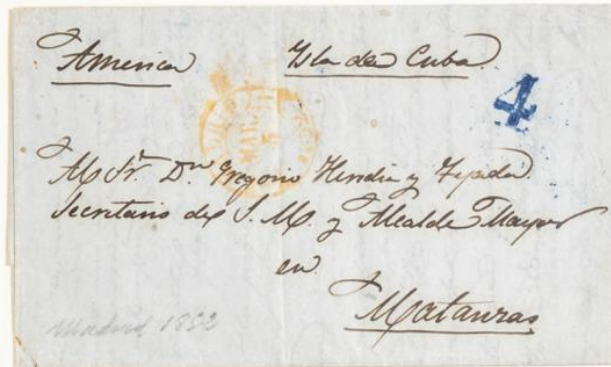 America Isla de Cuba
4
Al Sr. Dn. Gregorio Hendia y Tejada
Secretario de S. M. y Alcalde Mayor
en
Matanzas
Madrid 1852